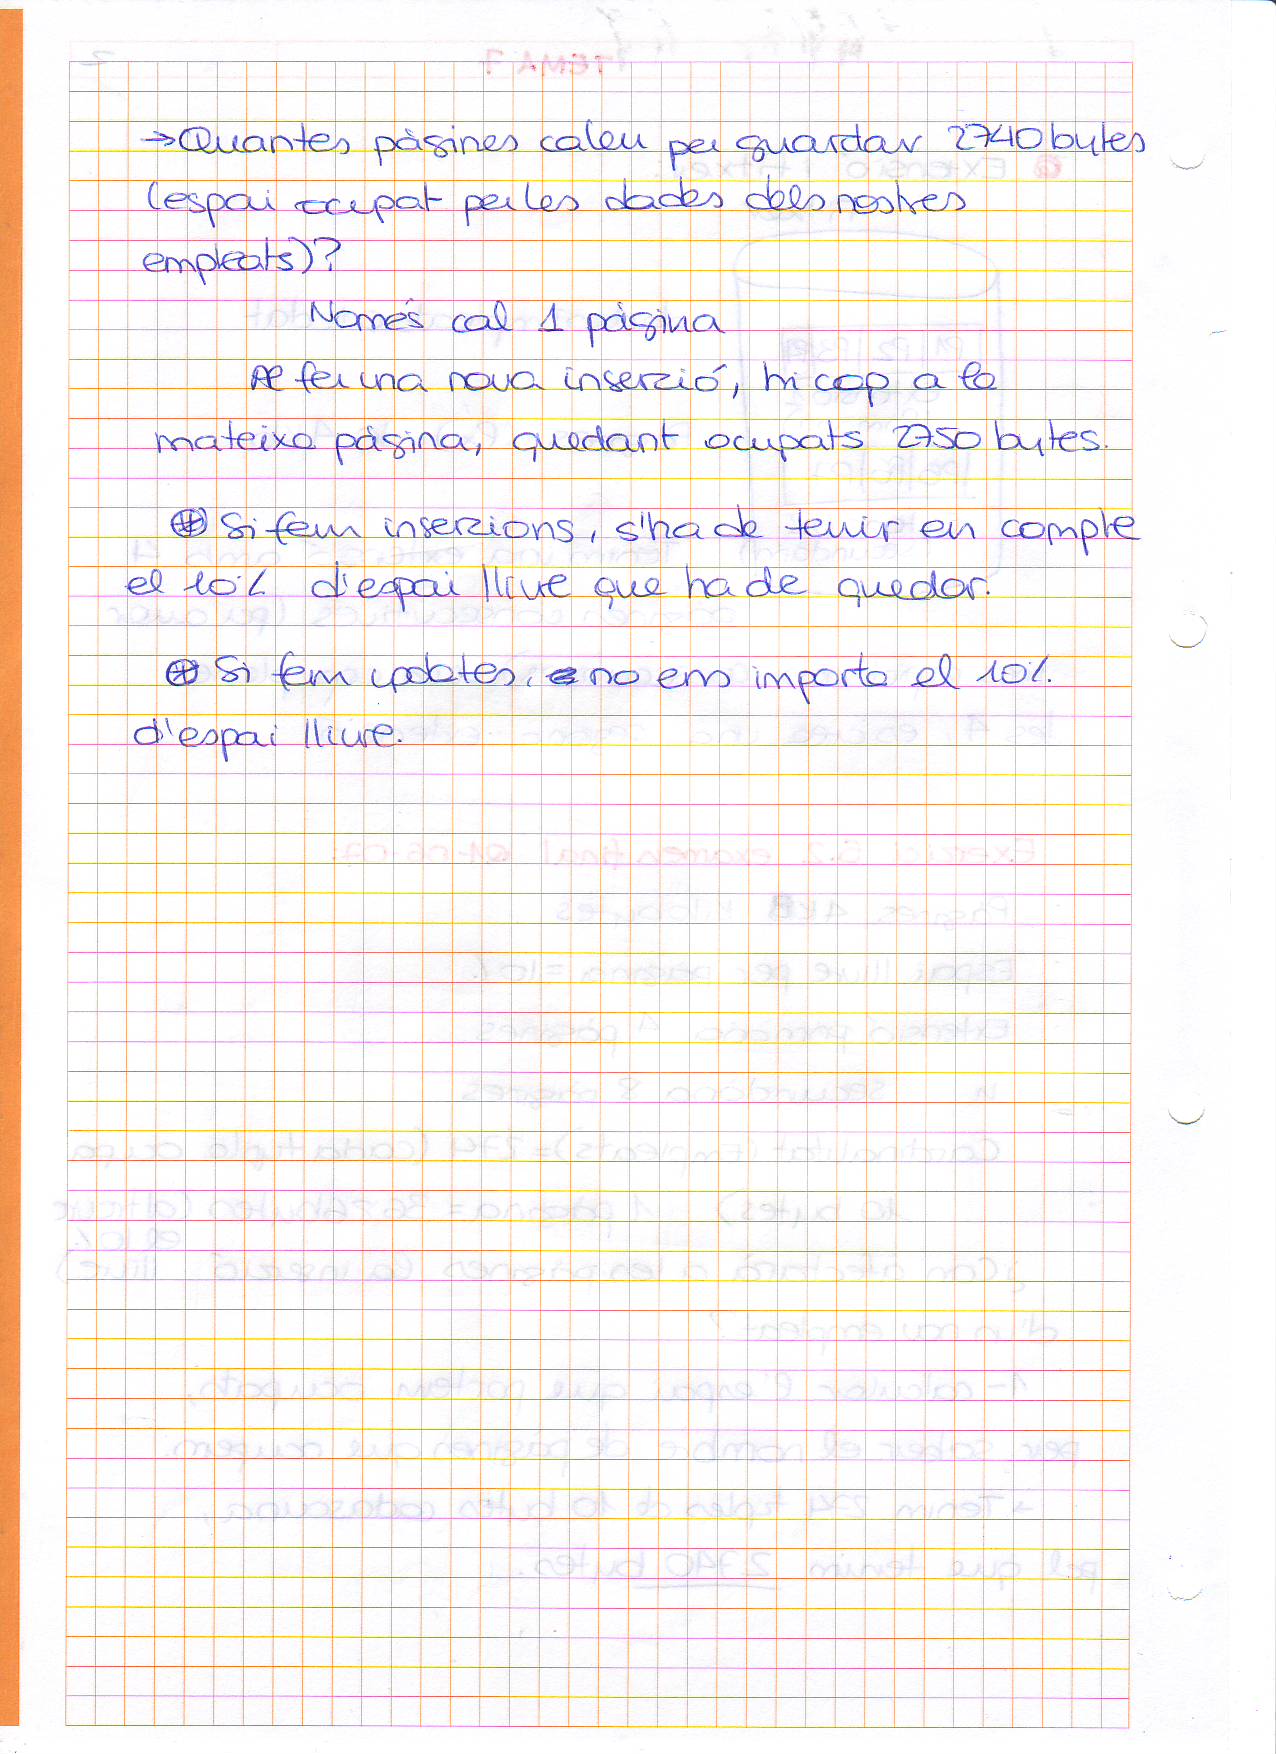 →Quantes pàgines caleu per guardar 2740 bytes
(espai ocupat per les dades dels nostres
empleats)?
Només cal 1 pàgina
Al fer una nova inserzió, hi cap a la
mateixa pàgina, quedant ocupats 2750 bytes.
⊕ Si fem inserzions, s'ha de tenir en compte
el 10% d'espai lliure que ha de quedar.
⊕ Si fem updates, no ens importa el 10%
d'espai lliure.